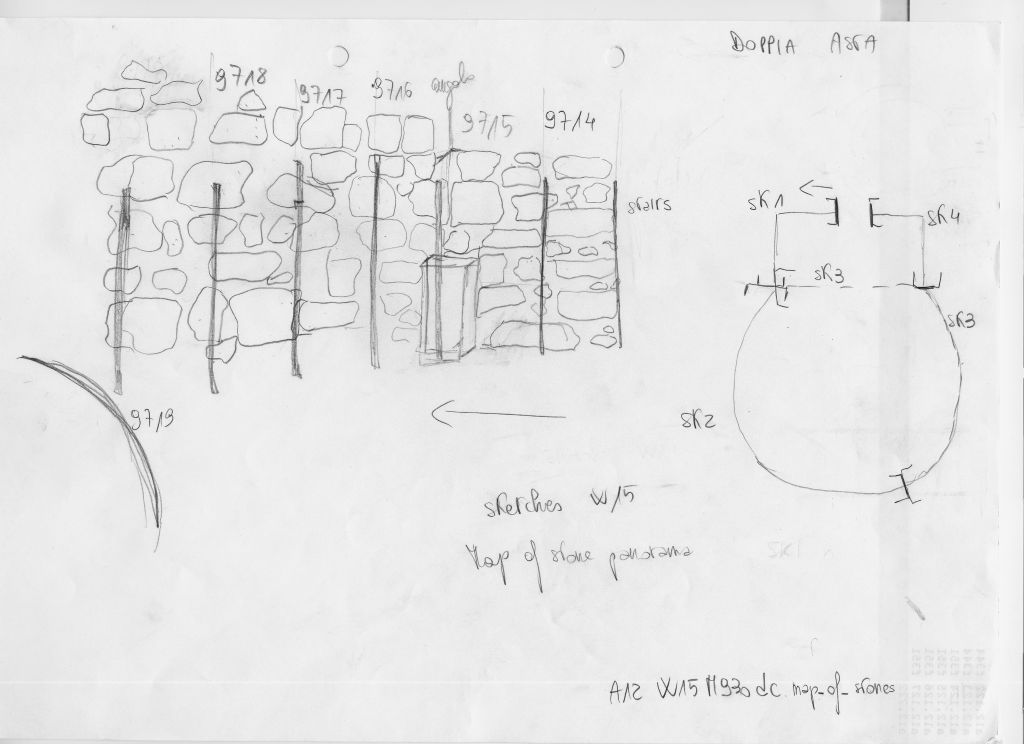 DOPPIA ASTA
9718
9717
9716
angolo
9715
9714
stairs
sk1
sk4
sk3
sk3
9719
sk2
sketches W15
Map of stone panorama
A12 W15 M930 dc. map_of_stones